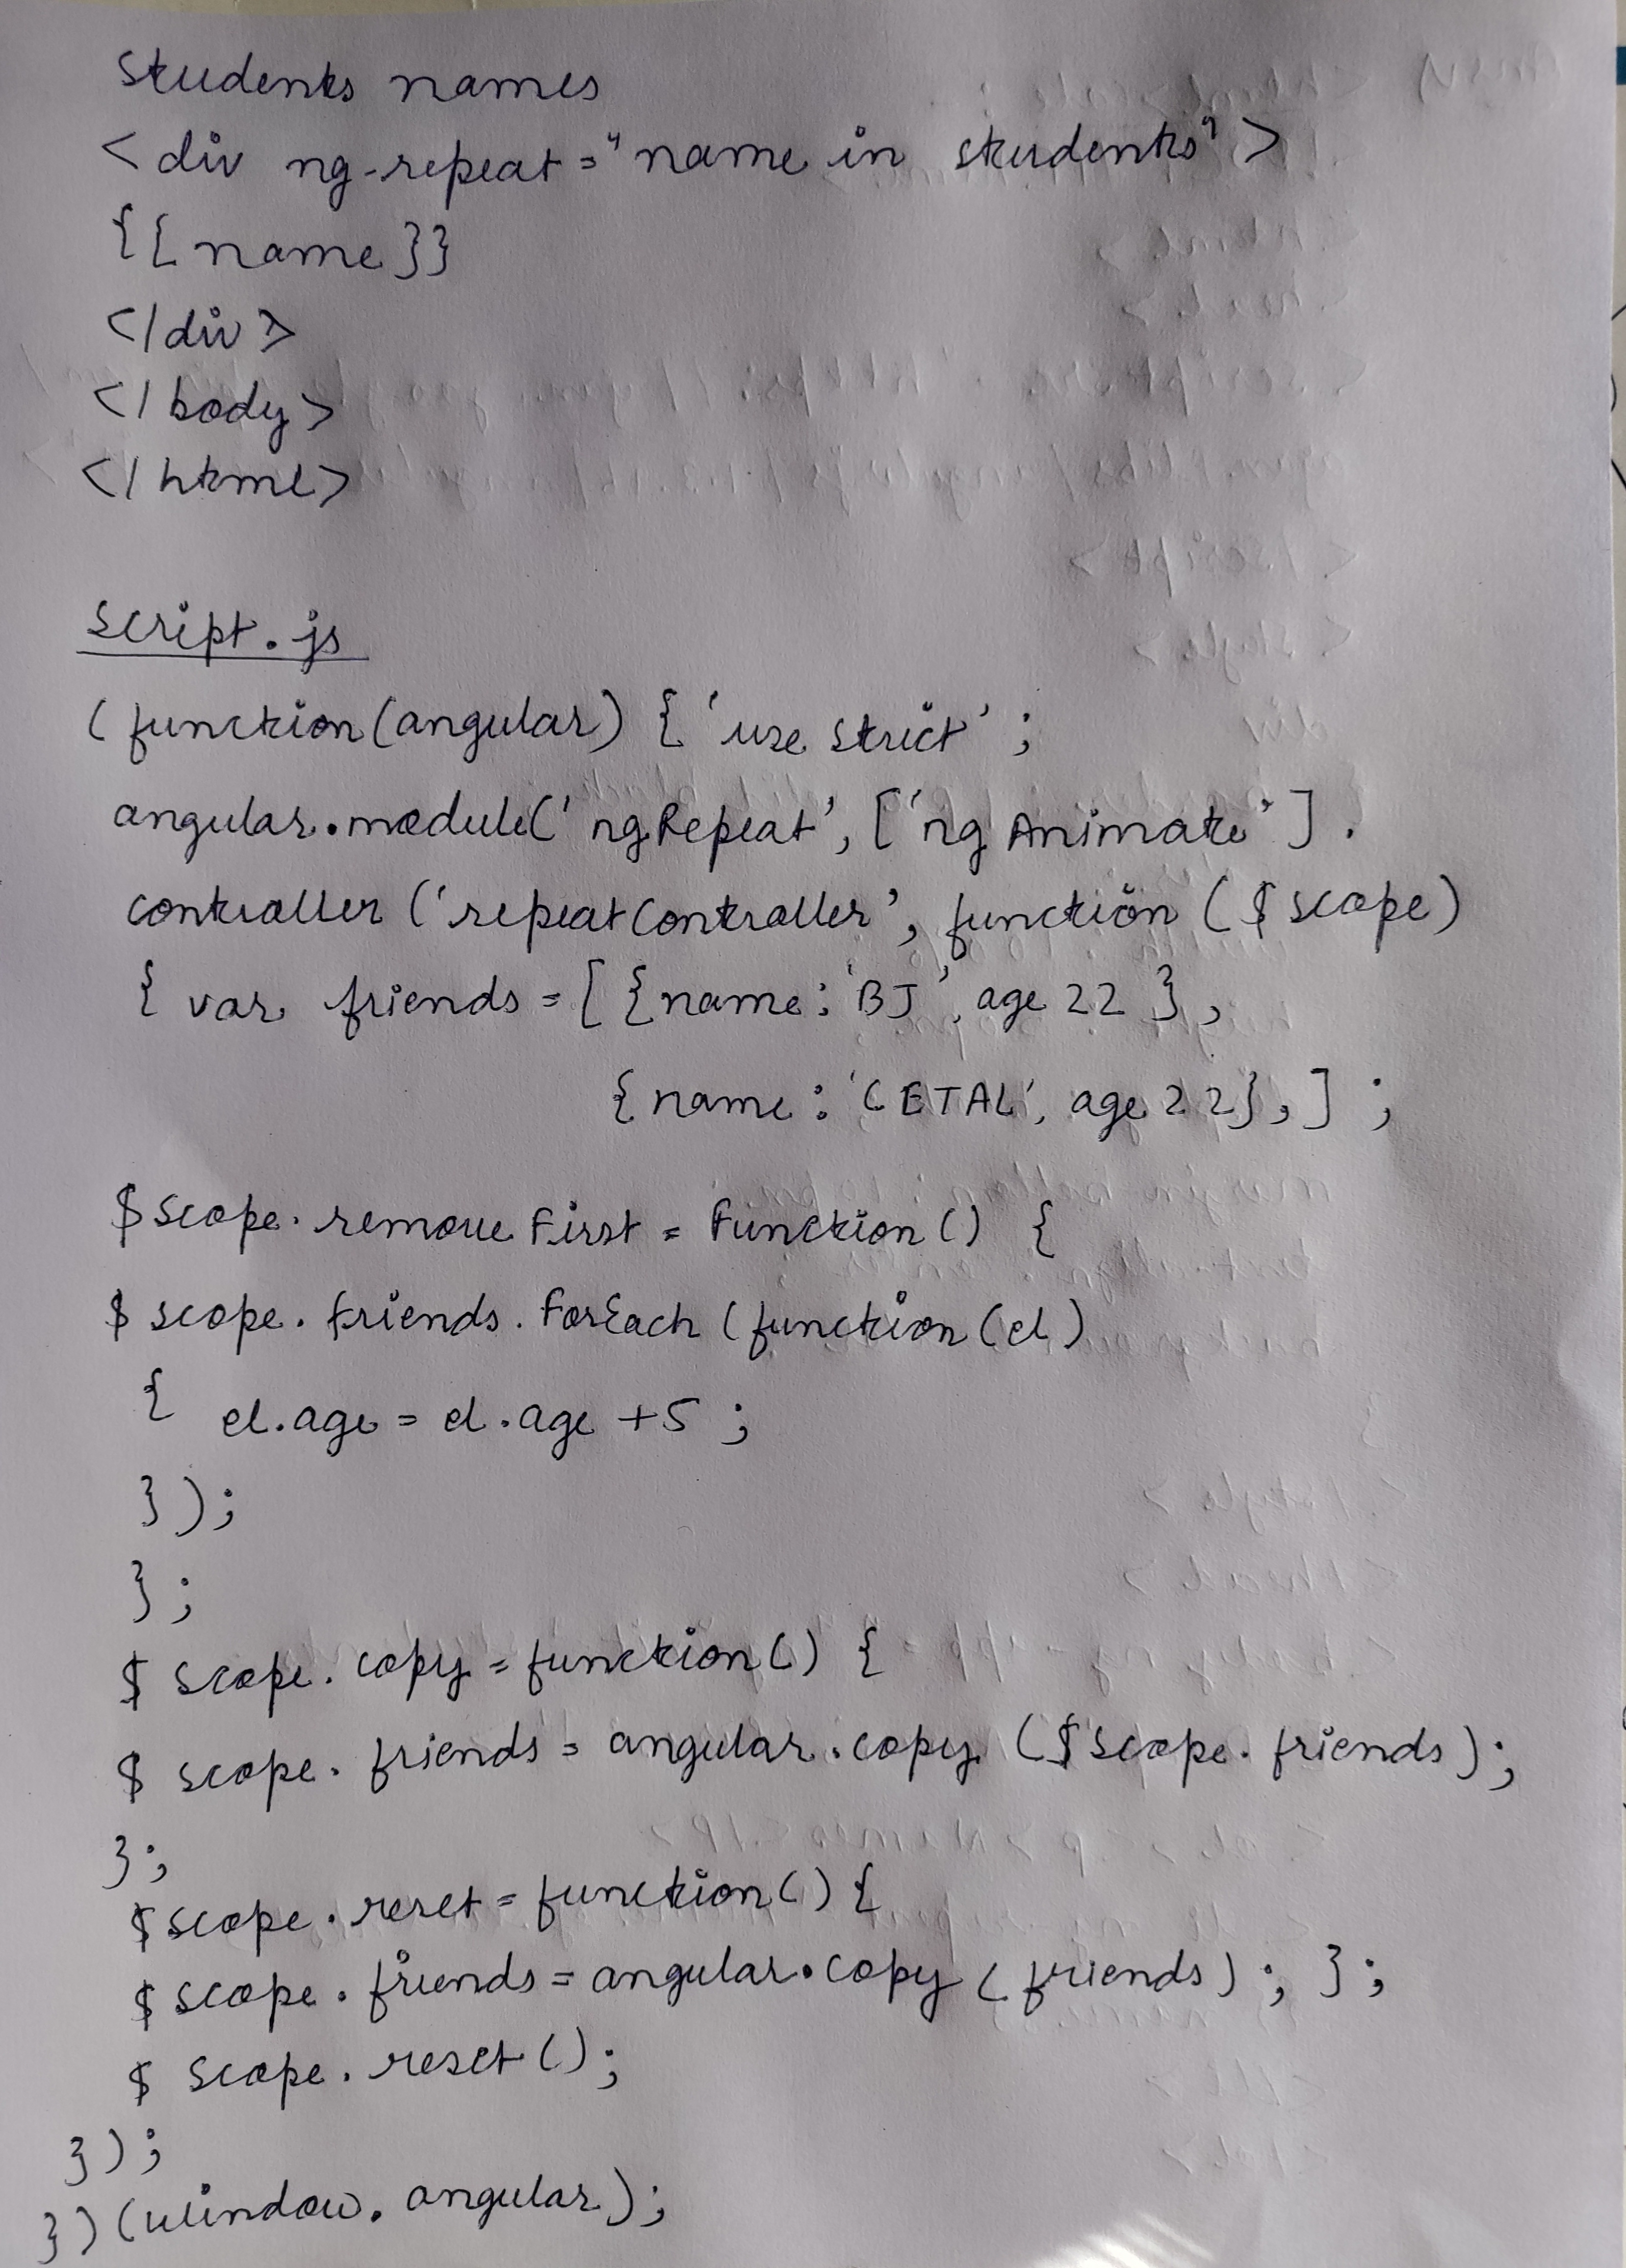 Students names
<div ng-repeat="name in students">
{{name}}
</div>
</body>
</html>
script.js
(function(angular) { 'use strict';
angular.module('ngRepeat', ['ngAnimate'].
controller ('repeatController', function ($scope)
{ var friends = [ {name: 'BJ', age 22 },
{name: 'CETAL', age 22}, ] ;
$scope.removeFirst = Function() {
$scope.friends.ForEach (function(el)
{ el.age = el.age +5 ;
});
};
$scope.copy = function() {
$scope.friends = angular.copy ($scope.friends);
};
$scope.reset = function() {
$scope.friends = angular.copy (friends) ; };
$scope.reset();
});
})(window.angular);